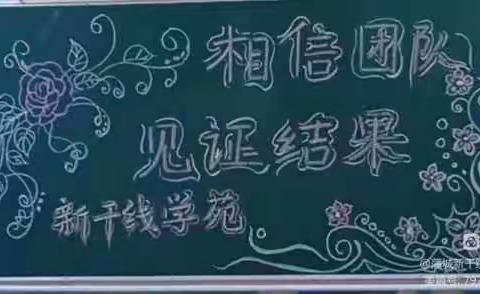 相信团队
见证结果
新干线学苑